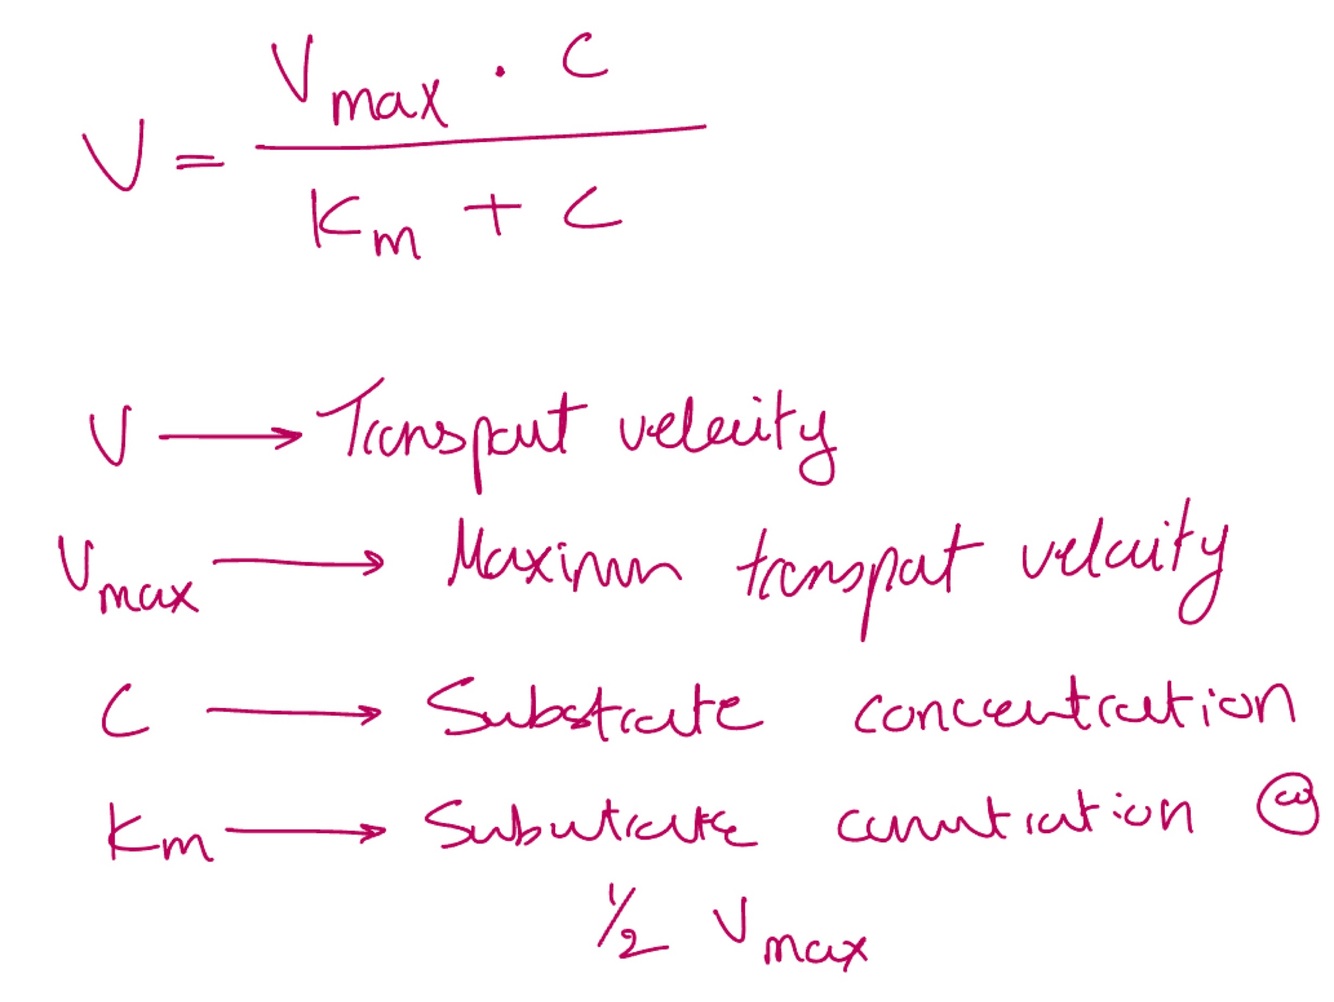 V = (Vmax · C) / (Km + C)
V → Transport velocity
Vmax → Maximum transport velocity
C → Substrate concentration
Km → Substrate concentration @
1/2 Vmax